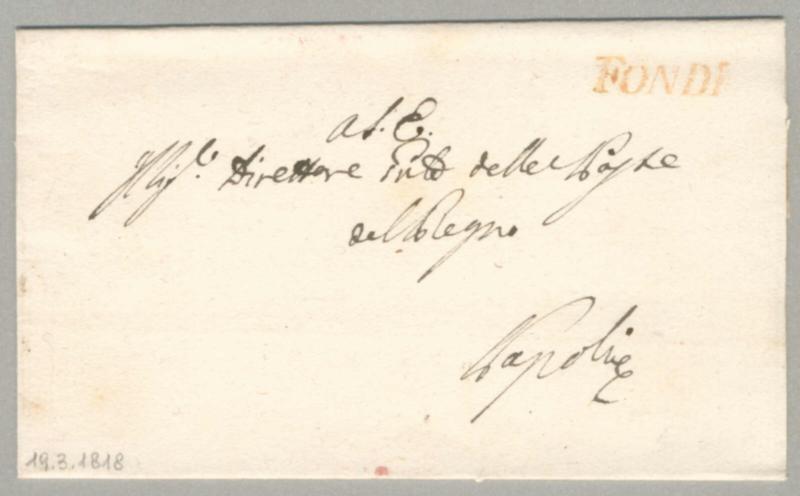 FONDI
a S. E.
Il Sig.r Direttore Gnle delle Poste
del Regno
Napoli
19.3.1818